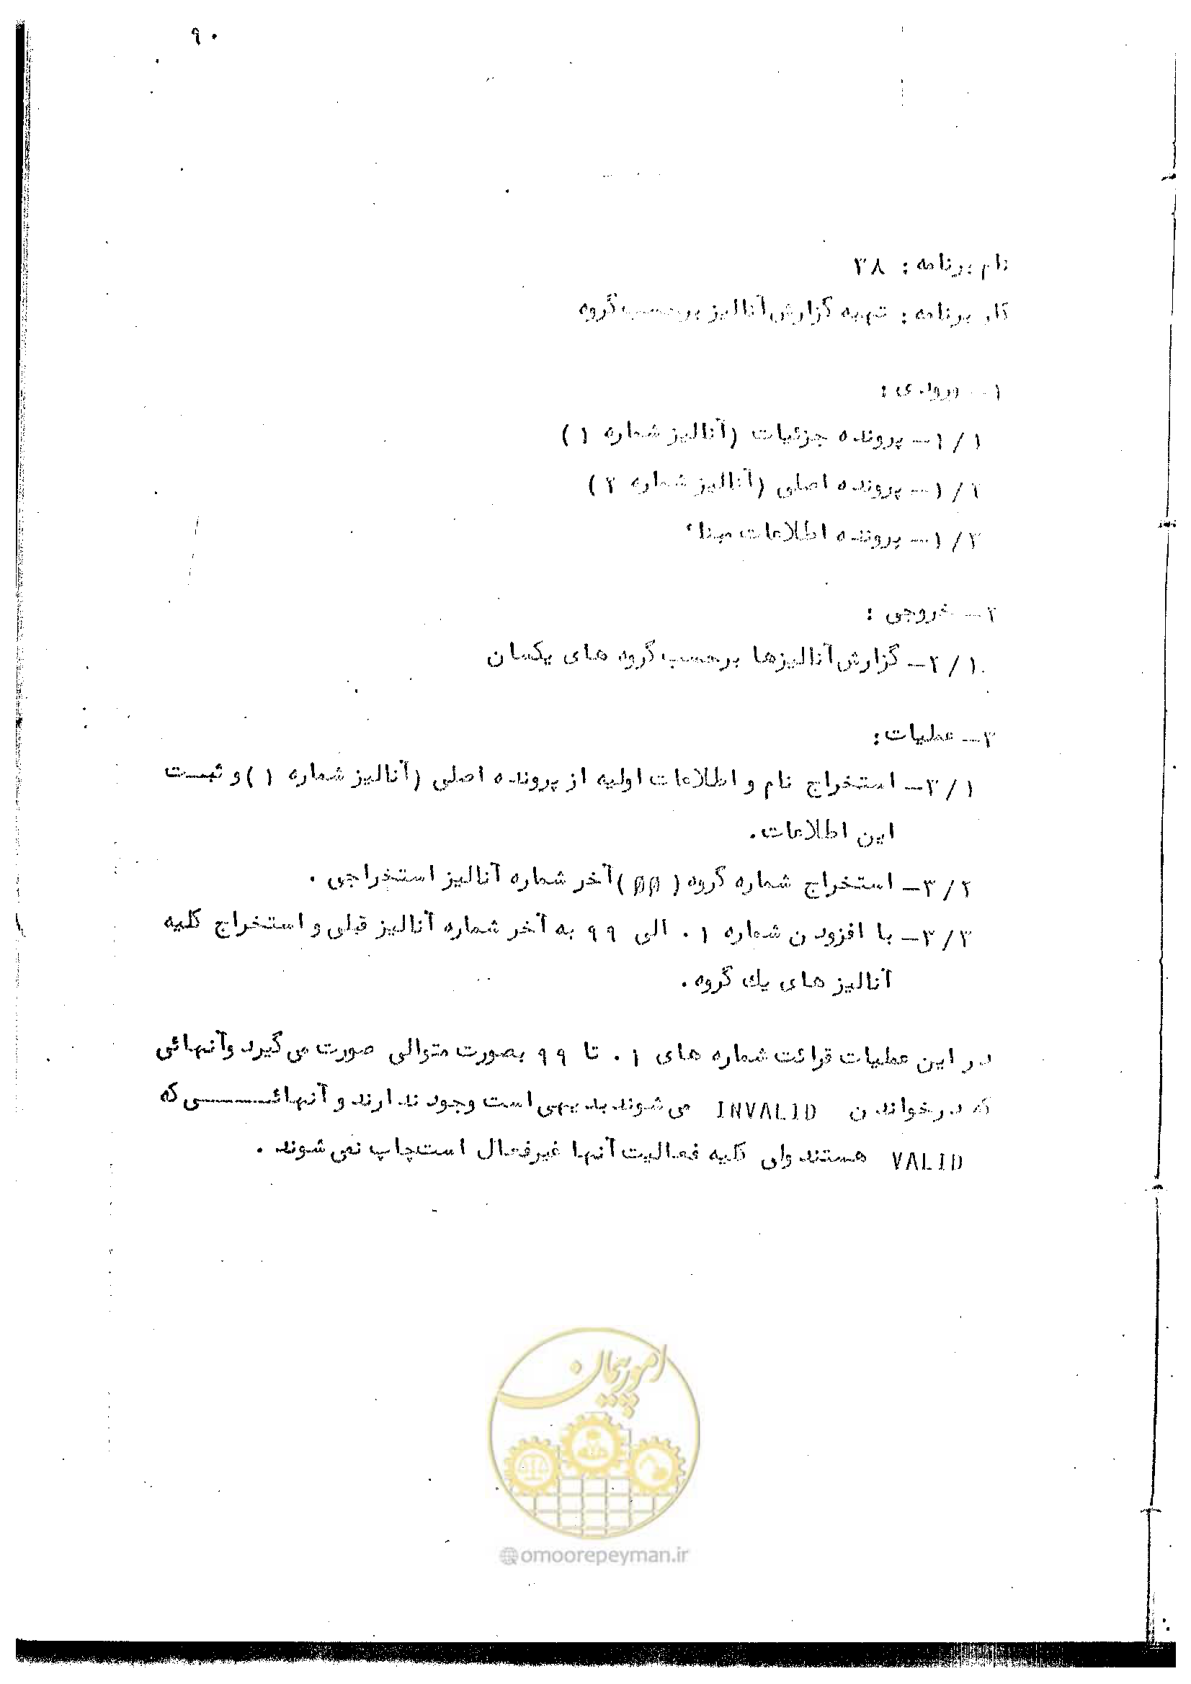 ۹۰
نام برنامه : ۳۸
کار برنامه : تهیه گزارش آنالیز برحسب گروه
۱ــ ورودی :
۱/۱ــ پرونده جزئیات (آنالیز شماره ۱)
۱/۲ــ پرونده اصلی (آنالیز شماره ۲)
۱/۳ــ پرونده اطلاعات مبناء
۲ــ خروجی :
۲/۱ــ گزارش آنالیزها برحسب گروه های یکسان
۳ــ عملیات :
۳/۱ــ استخراج نام و اطلاعات اولیه از پرونده اصلی (آنالیز شماره ۱) و ثبت
این اطلاعات.
۳/۲ــ استخراج شماره گروه (ØØ) آخر شماره آنالیز استخراجی .
۳/۳ــ با افزودن شماره ۰۱ الی ۹۹ به آخر شماره آنالیز قبلی و استخراج کلیه
آنالیز های یك گروه .
در این عملیات قرائت شماره های ۰۱ تا ۹۹ بصورت متوالی صورت می گیرد وآنهائی
که درخواندن INVALID می شوند بدیهی است وجود ندارند و آنهائی که
VALID هستند ولی کلیه فعالیت آنها غیرفعال است چاپ نمی شوند .
امور پیمان
@omoorepeyman.ir